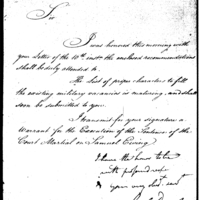 Sir
I was honored this morning with
your Letter of the 10th inst. the enclosed recommendations
shall be duly attended to.
The List of proper characters to fill
the existing military vacancies is maturing, and shall
soon be submitted to you.
I transmit for your signature a
Warrant for the Execution of the Sentence of the
Court Martial on Samuel Ewing
I have the honor to be
with profound
your very